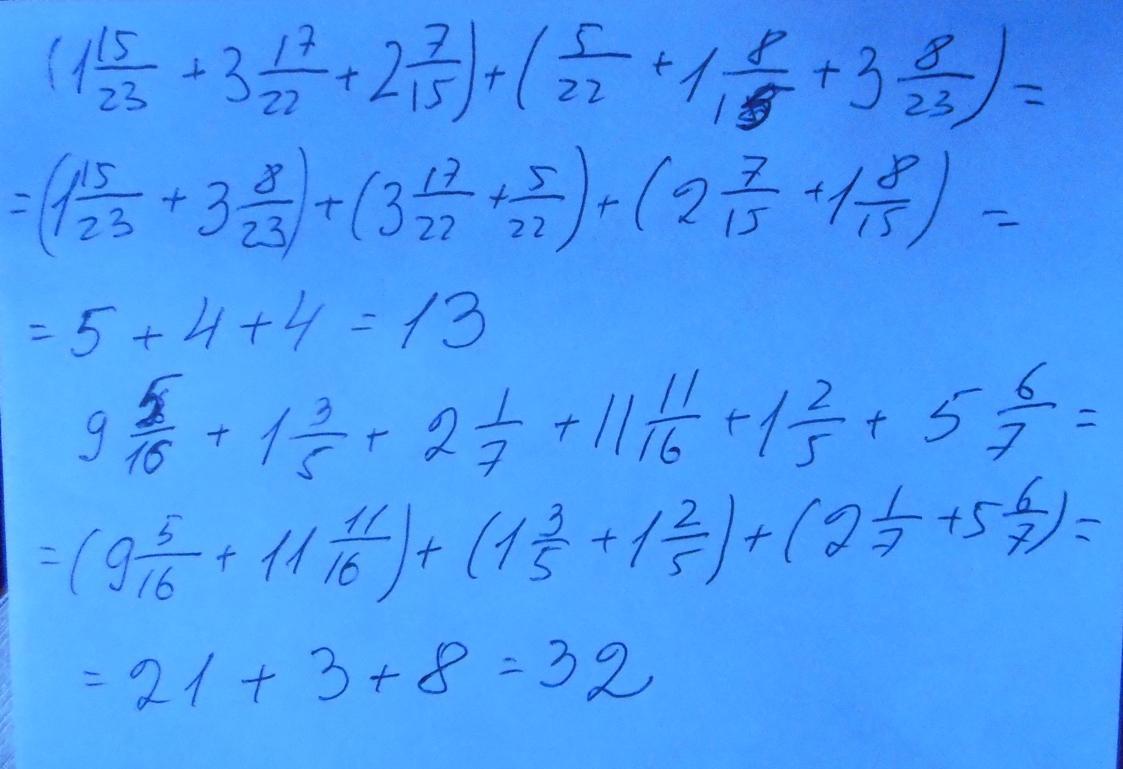 (1 15/23 + 3 17/22 + 2 7/15) + (5/22 + 1 8/15 + 3 8/23) =
= (1 15/23 + 3 8/23) + (3 17/22 + 5/22) + (2 7/15 + 1 8/15) =
= 5 + 4 + 4 = 13
9 5/16 + 1 3/5 + 2 1/7 + 11 11/16 + 1 2/5 + 5 6/7 =
= (9 5/16 + 11 11/16) + (1 3/5 + 1 2/5) + (2 1/7 + 5 6/7) =
= 21 + 3 + 8 = 32